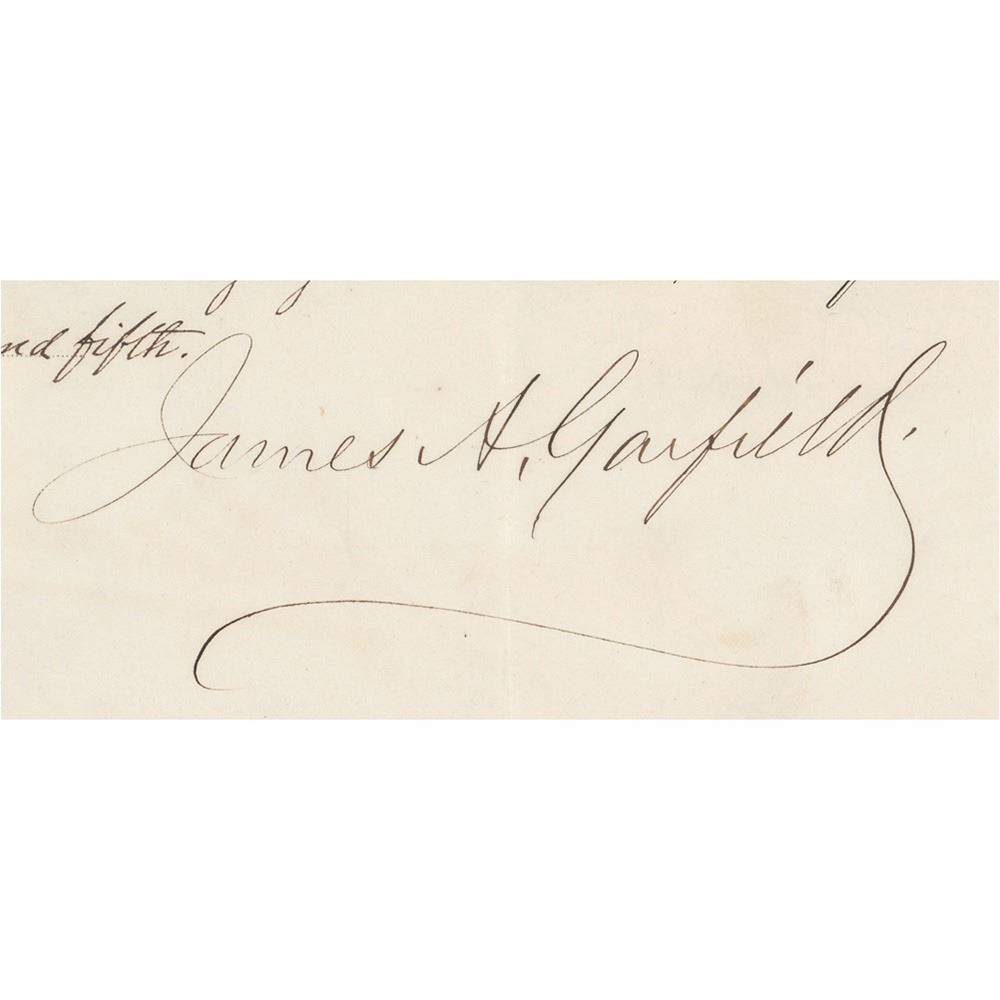 nd fifth.
James A. Garfield.